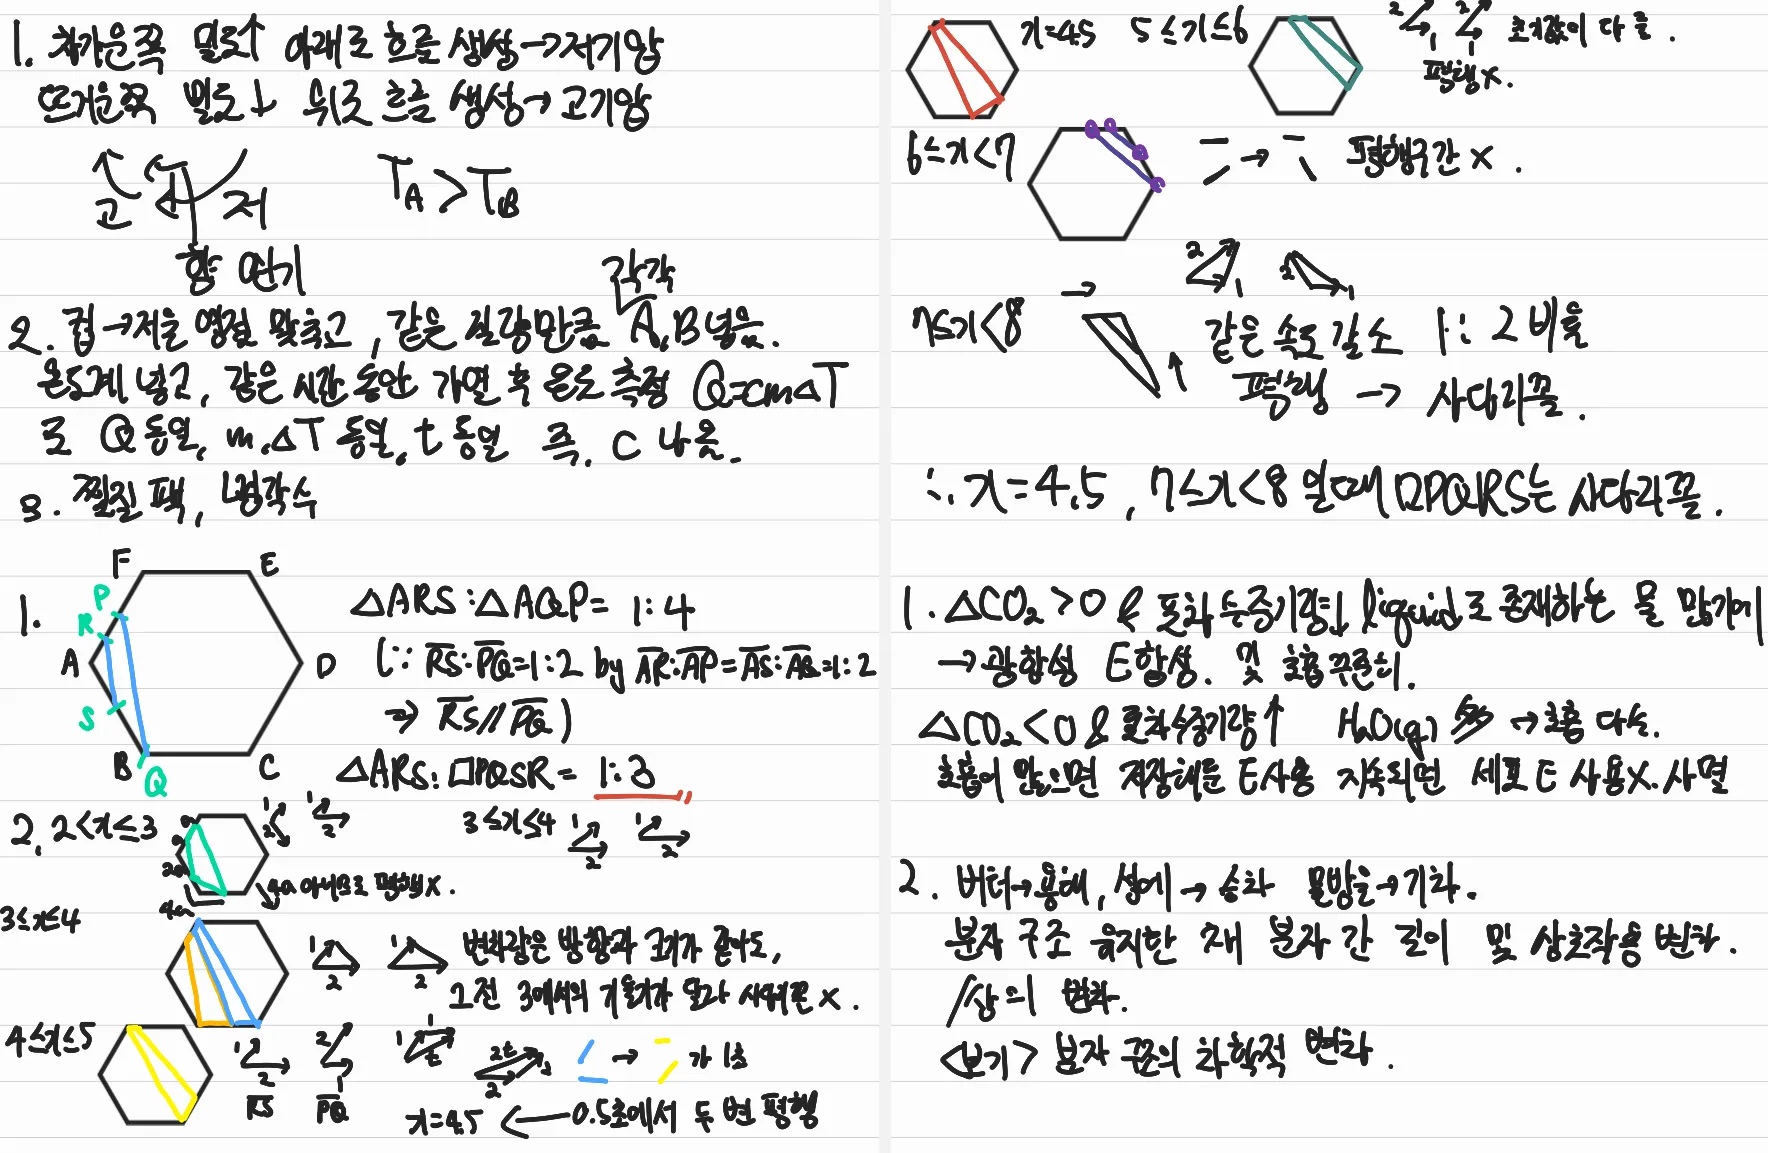 1. 차가운쪽 밀도↑ 아래로 흐름 생성→저기압
뜨거운쪽 밀도↓ 위로 흐름 생성→고기압
고 저 T_A > T_B
2. 컵→저울 영점 맞추고, 같은 질량만큼 각각 A,B 넣음.
온도계 넣고, 같은 시간 동안 가열 후 온도 측정 Q=cm△T
로 Q 동일, m,△T 동일, t 동일 즉, C 나옴.
3. 찜질 팩, 냉각수
F E
P
R
A D
S
B C
Q
1. △ARS:△AQP= 1:4
(∵ RS:PQ=1:2 by AR:AP=AS:AQ=1:2
⇒ RS//PQ)
△ARS:□PQSR= 1:3
2. 2<x≤3
a
2a
4a
1 2 1 2
4a 아니므로 평행x.
3≤x≤4 1 2 1 2
3≤x≤4
1 2 1 2
변화량은 방향과 크기가 같아도,
그전 3에서의 기울기가 달라 사다리꼴 x.
4≤x≤5
1 2 RS
2 1 PQ
가 1초
x=4.5 ← 0.5초에서 두 변 평행
x=4.5 5≤x≤6
2 1 2 1 초기값이 다름.
평행x.
6≤x<7 → 평행구간 x.
7≤x<8
→ 2 1 2 1
같은 속도 감소 1:2 비율
평행 → 사다리꼴.
∴ x=4.5, 7≤x<8 일때 □PQRS는 사다리꼴.
1. △CO₂>0 & 포화수증기량↓ liquid로 존재하는 물 많기에
→광합성 E합성. 및 호흡 꾸준히.
△CO₂<0 & 포화수증기량↑ H₂O(g) →호흡 다수.
호흡이 많으면 저장해둔 E사용 지속되면 세포 E 사용X. 사멸
2. 버터→용해, 성에→승화 물방울→기화.
분자 구조 유지한 채 분자 간 길이 및 상호작용 변화.
/상의 변화.
<보기> 분자 구조의 화학적 변화.